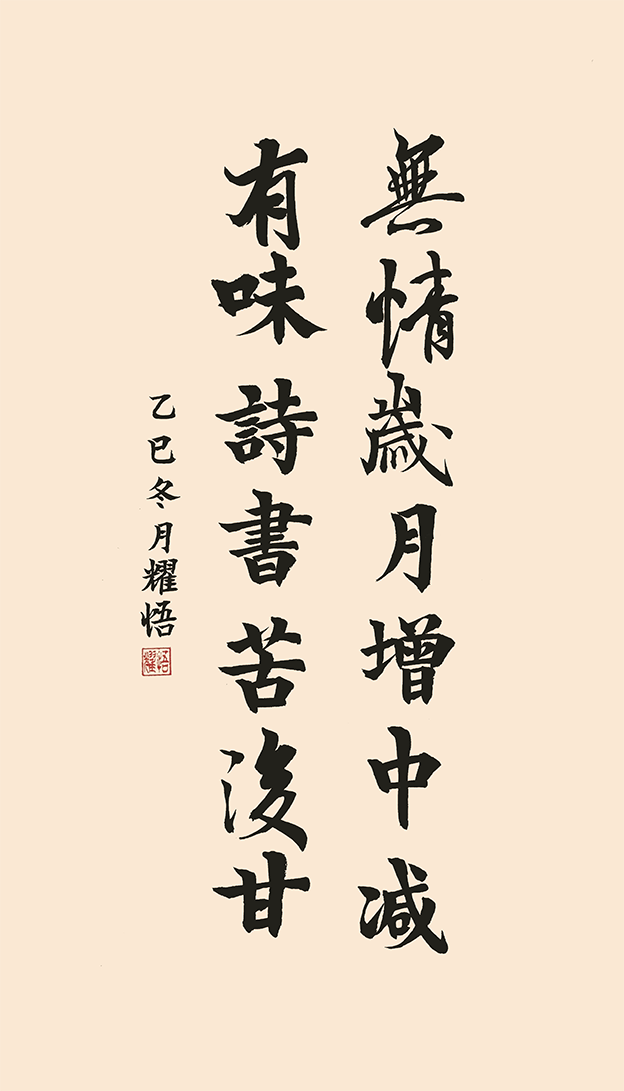 無情歲月增中减
有味詩書苦後甘
乙巳冬月耀悟
耀悟